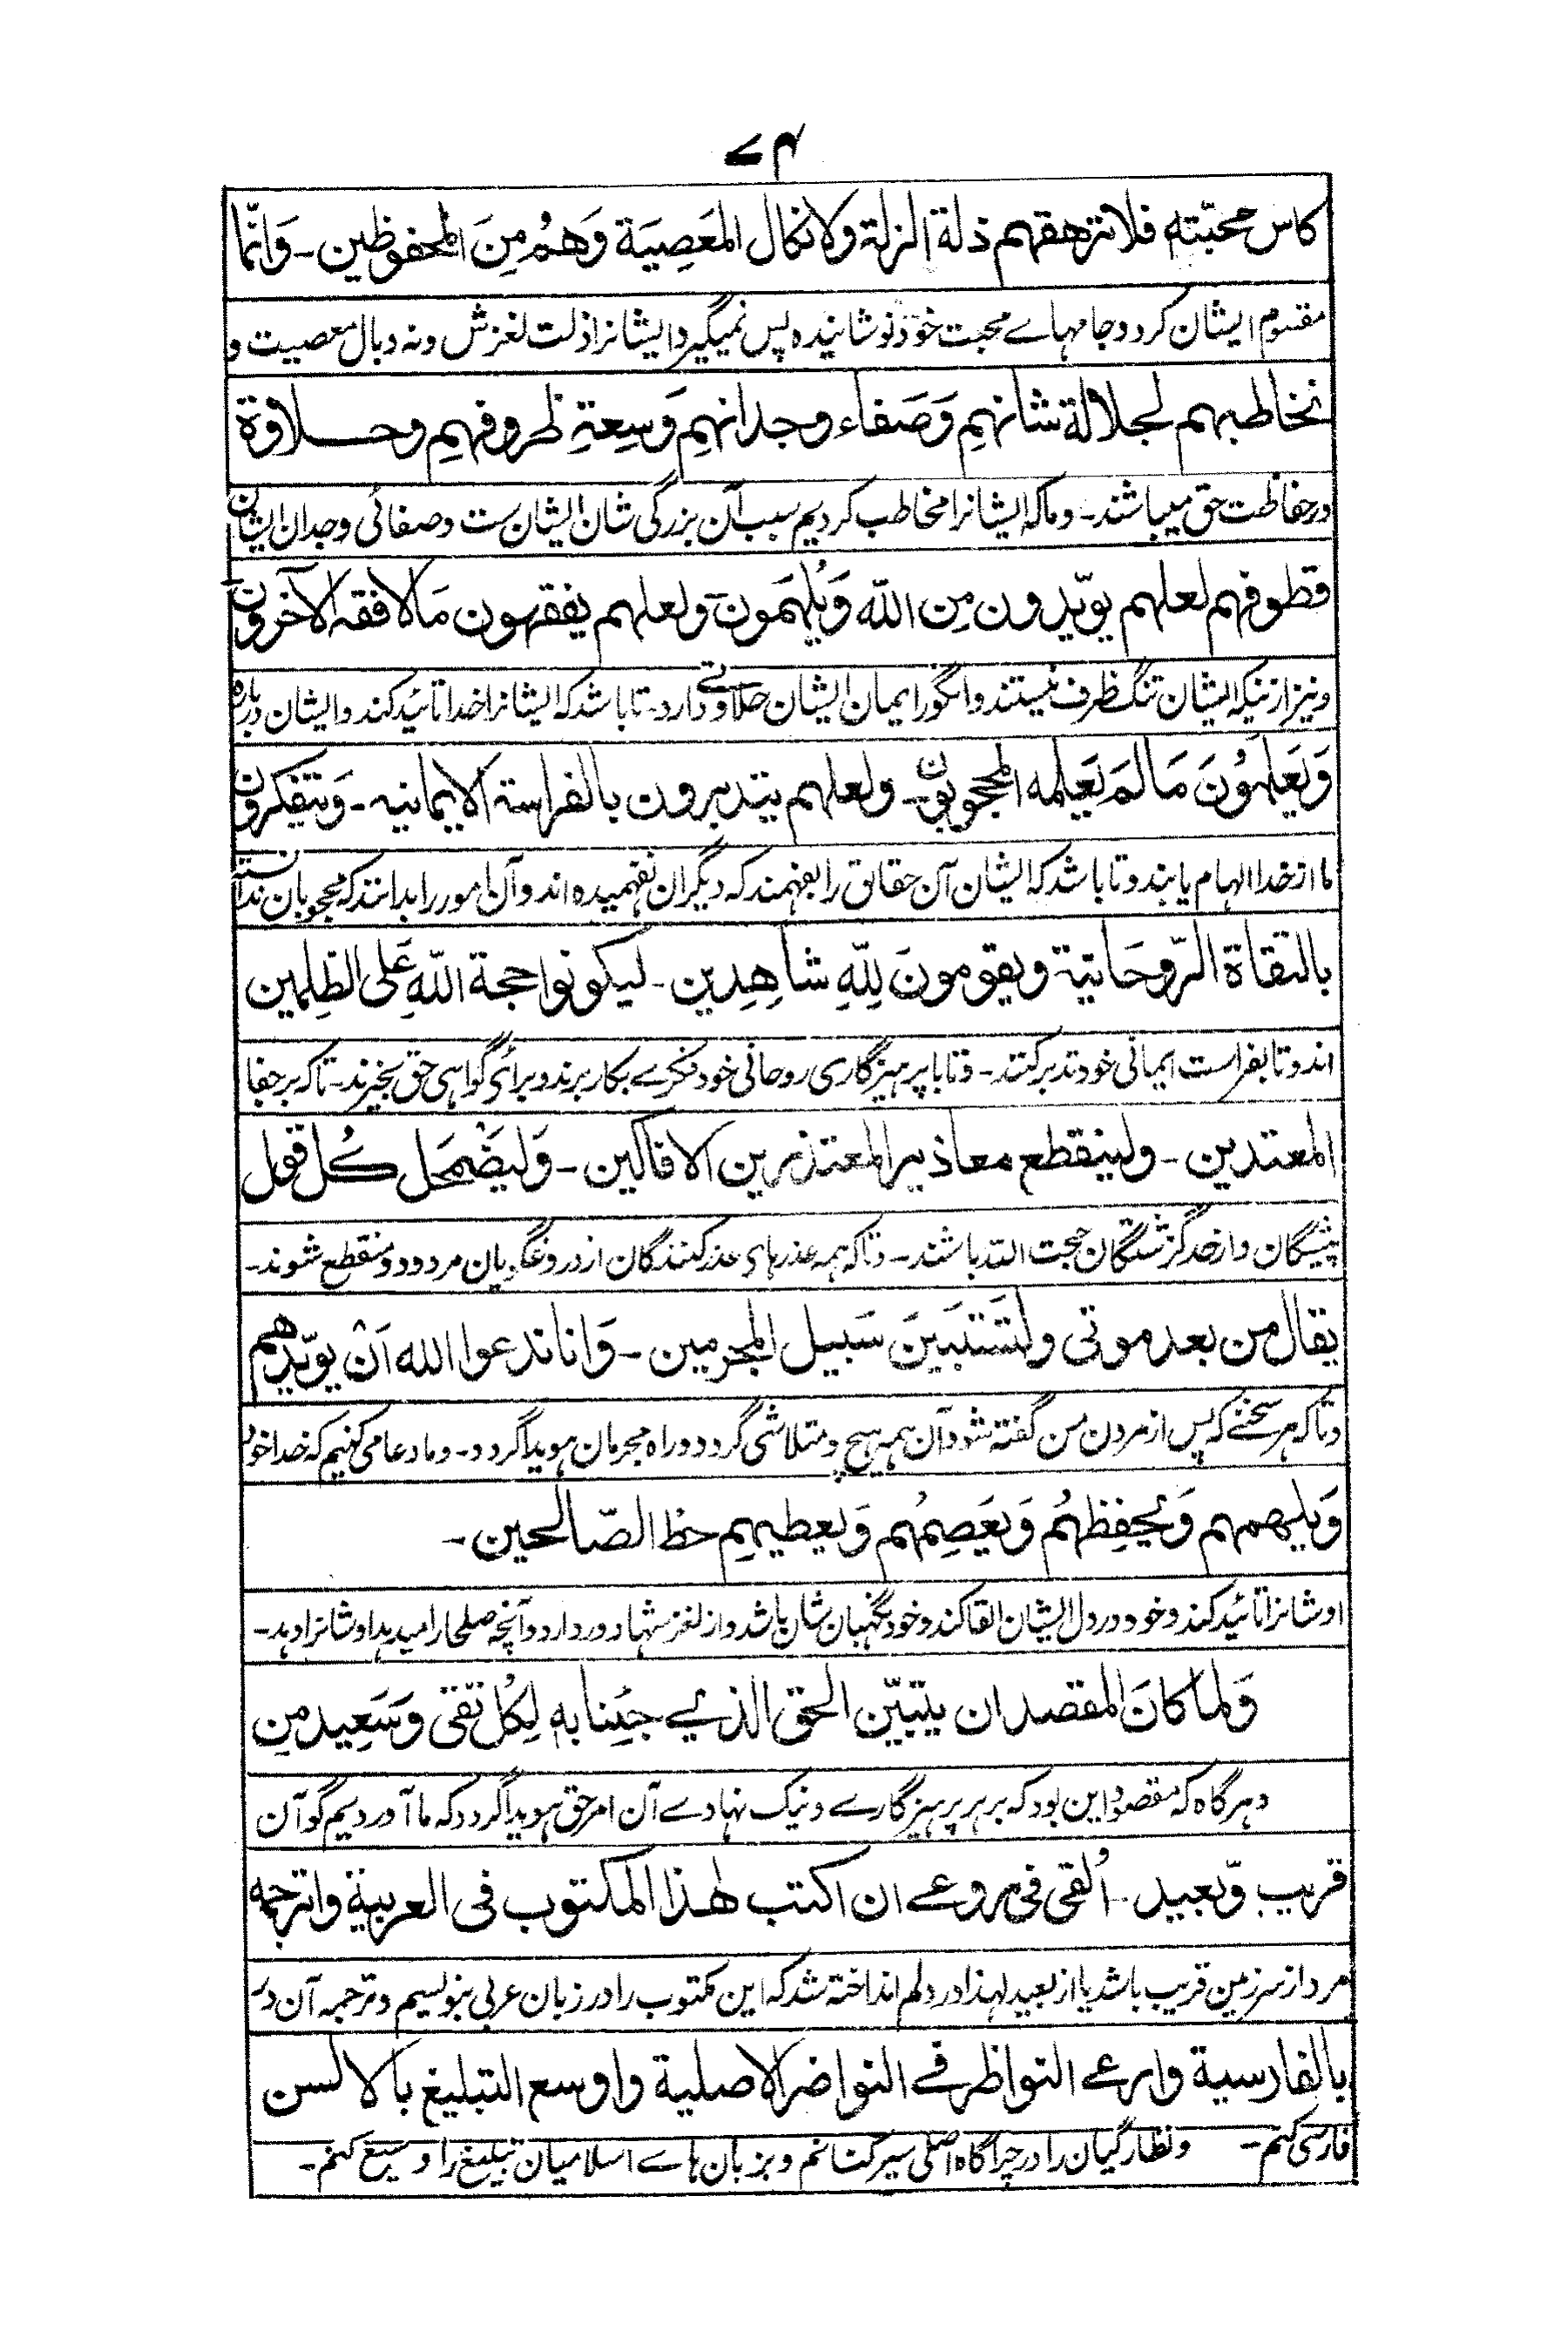 ۷۴
كاس محبّته فلا ترهقهم ذلة الزلة ولا نكال المَعصِيَة وَهُم مِنَ المحفوظين ۔ وَانّما
مقسوم ایشان کرد و جامہائے محبت خود نوشانیدہ پس نمیگیرد ایشانرا ذلت لغزش و نہ وبال معصیت و
نخاطبهم لجلالة شانهم وَصَفاء وجدانهِم وَسِعةِ ظروفهِم وحلاوة
در حفاظت حق میباشند ۔ و ما کہ ایشانرا مخاطب کردیم سبب آن بزرگی شان ایشان ست و صفائی وجدان ایشان
قطوفهم لعلهم يويّدون مِن الله وَيُلهَمون ولعلهم يفقهون مَا لا فقه الآخرون
و نیز ازینکہ ایشان تنگ ظرف نیستند و انگور ایمان ایشان حلاوتے دارد ۔ تا باشد کہ ایشانرا خدا تائید کند و ایشان دربارہ
وَيَعلمُونَ مَا لَم يَعلمه المحجوبون ۔ ولعلهم يتدبرون بالفراسة الايمانيه ۔ وَيتفكرون
ما از خدا الہام یابند و تا باشد کہ ایشان آن حقائق را بفہمند کہ دیگران نفہمیدہ اند و آن امور را بدانند کہ محجوبان ندانستہ
بالتقاة الرّوحَانية ويقومونَ لِلّهِ شاهِدِين ۔ ليكونوا حجة اللهِ عَلى الظلِمين
اند و تا بفراست ایمانی خود تدبر کنند ۔ و تا با پرہیزگاری روحانی خود فکرے بکار برند و برائے گواہی حق بخیزند ۔ تا کہ بر جفا
المعتدين ۔ ولينقطع معاذير المعتذرين الافاكين ۔ وَليضْمَحل كُل قول
پیشگان و از حد گزشتگان حجت اللہ باشند ۔ و تا کہ ہمہ عذرہای عذر کنندگان از دروغگویان مردود و منقطع شوند ۔
يقال من بعد موتى ولتَستَبينَ سَبيل المجرمين ۔ وَانا ندعوا الله اَنْ يويّدهم
و تا کہ ہر سخنے کہ پس از مردن من گفتہ شود آن ہمہ ہیچ و متلاشی گردد و راہ مجرمان ہویدا گردد ۔ و ما دعا می کنیم کہ خدا خود
وَيلهمهم وَيحفِظهُم وَيَعصِمُهم وَيعطيهِم حظ الصّالحين ۔
اوشانرا تائید کند و خود در دل ایشان القا کند و خود نگہبان شان باشد و از لغزشہا دور دارد و آنچہ صلحا را میدہد اوشانرا دہد ۔
وَلما كانَ المقصد ان يتبيّن الحق الذي جِئنا به لِكُل تقى وَسَعِيد مِن
و ہر گاہ کہ مقصود این بود کہ بر ہر پرہیزگارے و نیک نہادے آن امر حق ہویدا گردد کہ ما آوردیم گو آن
قريب وّبعيد ۔ اُلقى فى روعے ان اكتب هٰذا المكتوب فى العربية واترجمه
مرد از سرزمین قریب باشد یا از بعید لہذا در دلم انداختہ شد کہ این مکتوب را در زبان عربی بنویسیم و ترجمہ آن در
بالفارسية وارعے النواظر فے النواضر الاصلية واوسع التبليغ بالالسن
فارسی کنم ۔ و نظارگیان را در چراگاہ اصلی سیر کنانم و بزبان ہائے اسلامیان تبلیغ را وسیع کنم ۔